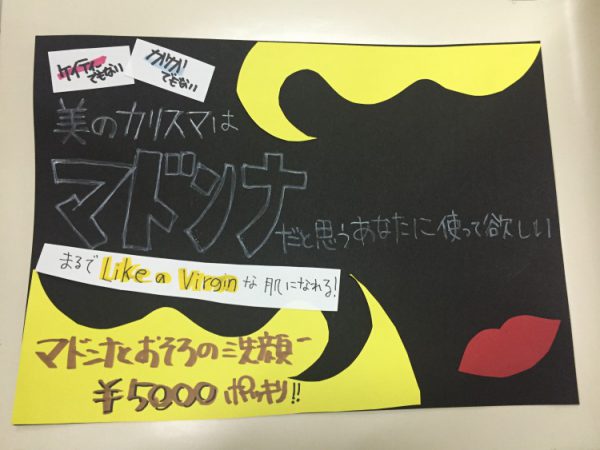 ケイティー
でもない
カルカル
でもない
美のカリスマは
マドンナ
だと思うあなたに使って欲しい
まるで Like a Virgin な肌になれる!
マドンナとおそろの洗顔ー
¥5000 ポッキリ!!